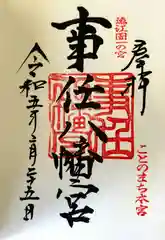 奉拝
遠江國一の宮
事任八幡宮
ことのまち本宮
令和五年二月二五日